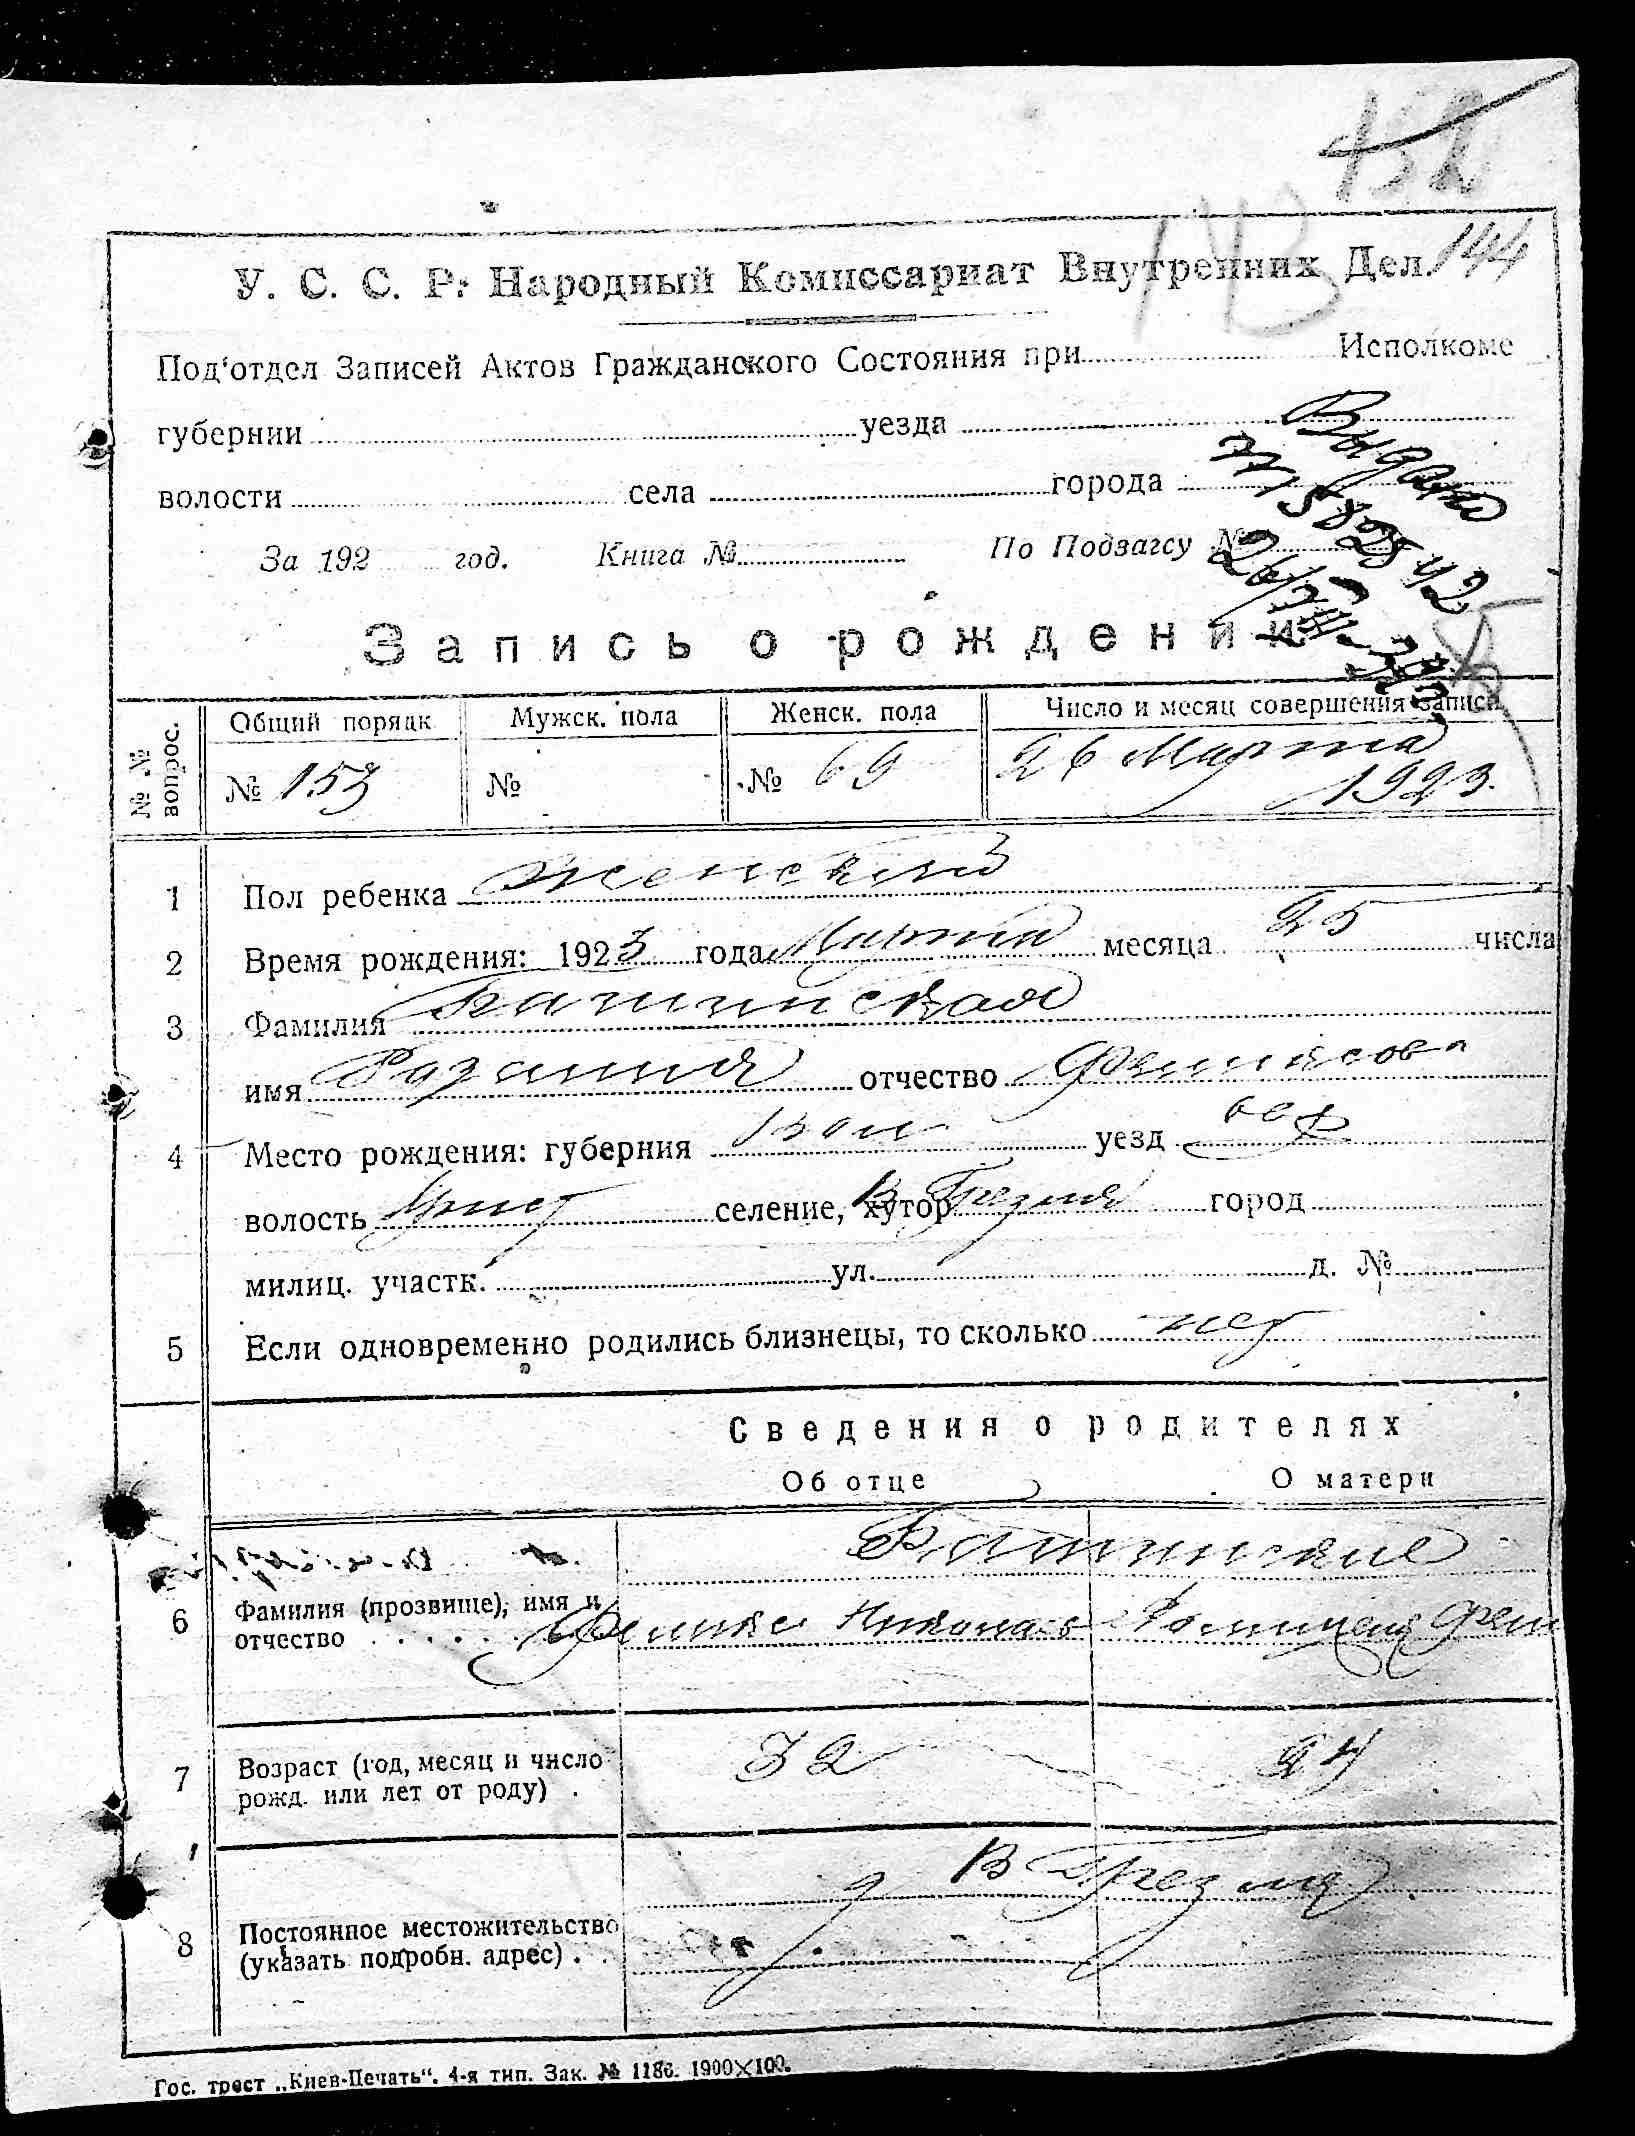 152
143
144
У. С. С. Р. Народный Комиссариат Внутренних Дел.
Под'отдел Записей Актов Гражданского Состояния при Исполкоме
губернии уезда
волости села города
Выдано
За 192 год. Книга № По Подзагсу №
Запись о рождении
№ № вопрос.
Общий порядк Мужск. пола Женск. пола Число и месяц совершения записи
№ 153 № № 69 26 Марта
1923.
1 Пол ребенка Женский
2 Время рождения: 1923 года Марта месяца 25 числа
3 Фамилия
имя отчество Феликсова
4 Место рождения: губерния Вол уезд
волость селение, хутор В город
милиц. участк. ул. д. №
5 Если одновременно родились близнецы, то сколько нет
Сведения о родителях
Об отце О матери
6 Фамилия (прозвище), имя и
отчество Феликс Никола
7 Возраст (год, месяц и число
рожд. или лет от роду) 32
8 Постоянное местожительство
(указать подробн. адрес)
Гос. трест „Киев-Печать“. 4-я тип. Зак. № 1186. 1900×100.